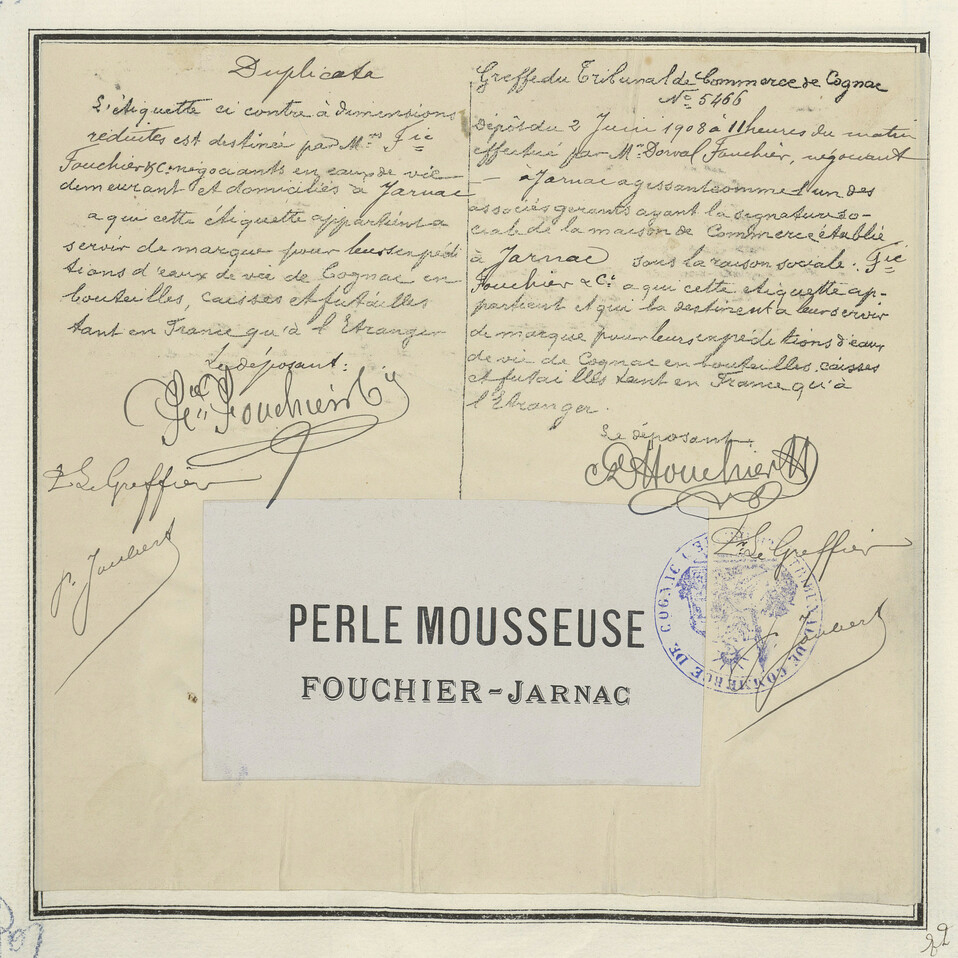 Duplicata
L'étiquette ci contre à dimensions
réduites est destinée par Mrs Fic
Fouchier & Cie négociants en eaux de vie
demeurant et domiciliés à Jarnac
a qui cette étiquette appartient a
servir de marque pour leurs expédi
tions d'eaux de vie de Cognac en
bouteilles, caisses et futailles
tant en France qu'à l'Etranger
Le déposant:
Fouchier & Cie
Le Greffier
P. Joubert
Greffe du Tribunal de Commerce de Cognac
No 5466
Dépôt du 2 Juin 1908 à 11 heures du matin
effectué par Mr Dorval Fouchier, négociant
à Jarnac agissant comme l'un des
associés gerants ayant la signature so-
ciale de la maison de Commerce établie
à Jarnac sous la raison sociale: Fic
Fouchier & Cie a qui cette étiquette ap-
partient et qui la destinent a leur servir
de marque pour leurs expéditions d'eaux
de vie de Cognac en bouteilles, caisses
et futailles tant en France qu'à
l'Etranger.
Le déposant
Fouchier
Le Greffier
Joubert
PERLE MOUSSEUSE
FOUCHIER-JARNAC
DE COMMERCE DE COGNAC